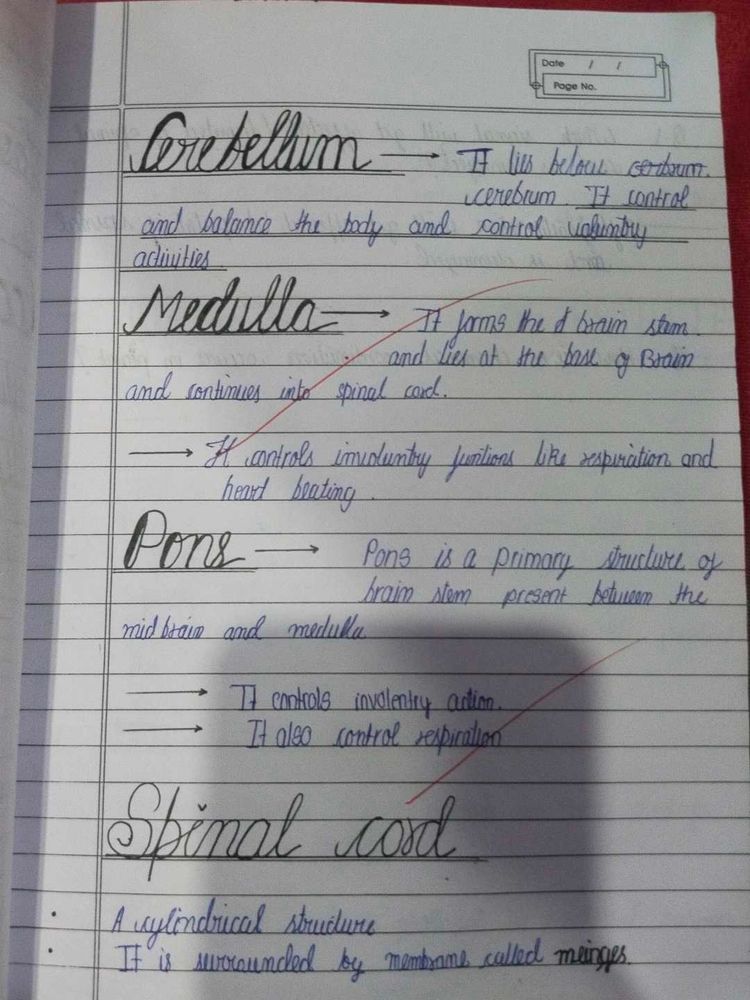 Date / /
Page No.
Cerebellum → It lies below cerbrum.
cerebrum. It control
and balance the body and control voluntry
activities
Medulla → It forms the d brain stem.
and lies at the base of Brain
and continues into spinal cord.
→ It controls involuntry funtions like respiration and
heart beating.
Pons → Pons is a primary structure of
brain stem present between the
mid brain and medulla
→ It controls involentry action.
→ It also control respiration
Spinal cord
• A cylindrical structure
• It is surrounded by membrane called meinges.